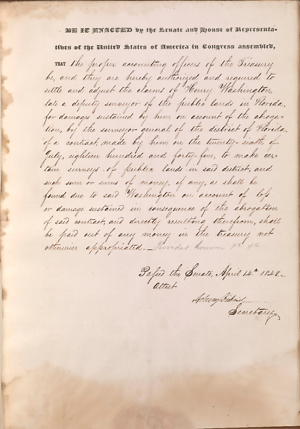 BE IT ENACTED by the Senate and House of Representa-
tives of the United States of America in Congress assembled,
THAT the proper accounting officers of the Treasury
be, and they are hereby authorized and required to
settle and adjust the claims of Henry Washington
late a deputy surveyor of the public lands in Florida,
for damages sustained by him on account of the abroga-
tion, by the surveyor general of the district of Florida
of a contract, made by him on the twenty sixth of
July, eighteen hundred and forty four, to make cer-
tain surveys of public lands in said district, and
such sum or sums of money, if any, as shall be
found due to said Washington on account of loss
or damage sustained in consequence of the abrogation
of said contract, and directly resulting therefrom, shall
be paid out of any money in the treasury not
otherwise appropriated.
Passed the Senate, April 14th 1848
Attest
Secretary